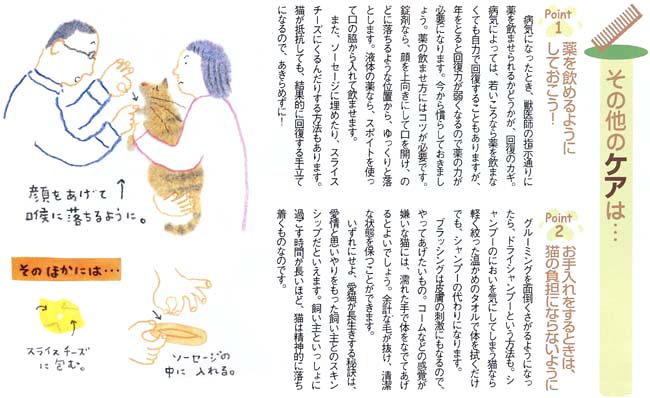 その他のケアは…
Point
1
薬を飲めるように
しておこう！
病気になったとき、獣医師の指示通りに
薬を飲ませられるかどうかが、回復のカギ。
病気によっては、若いころなら薬を飲まな
くても自力で回復することもありますが、
年をとると回復力が弱くなるので薬の力が
必要になります。今から慣らしておきまし
ょう。薬の飲ませ方にはコツが必要です。
錠剤なら、顔を上向きにして口を開け、の
どに落ちるような位置から、ゆっくりと落
とします。液体の薬なら、スポイトを使っ
て口の脇から入れて飲ませます。
また、ソーセージに埋めたり、スライス
チーズにくるんだりする方法もあります。
猫が抵抗しても、結果的に回復する手立て
になるので、あきらめずに！
Point
2
お手入れをするときは、
猫の負担にならないように
グルーミングを面倒くさがるようになっ
たら、ドライシャンプーという方法も。シ
ャンプーのにおいを気にしてしまう猫なら
軽く絞った温かめのタオルで体を拭くだけ
でも、シャンプーの代わりになります。
ブラッシングは皮膚の刺激にもなるので、
やってあげたいもの。コームなどの感覚が
嫌いな猫には、濡れた手で体をなでてあげ
るとよいでしょう。余計な毛が抜け、清潔
な状態を保つことができます。
いずれにせよ、愛猫が長生きする秘訣は、
愛情と思いやりをもった飼い主とのスキン
シップだといえます。飼い主といっしょに
過ごす時間が長いほど、猫は精神的に落ち
着くものなのです。
顔をあげて
喉に落ちるように。
そのほかには…
スライスチーズ
に包む。
ソーセージの
中に入れる。